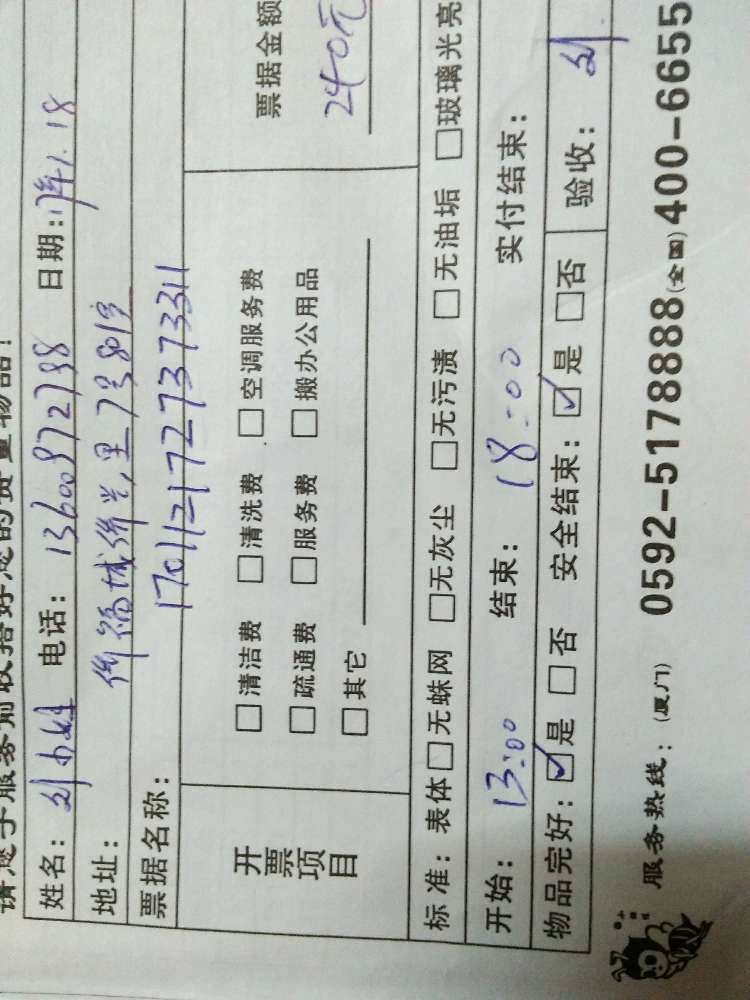 请您于服务前收捡好您的贵重物品！
姓名：刘小姐 电话：13600972738 日期：17年1.18
地址：侨福城侨兴里73号801
票据名称：1701121727373311
开票项目 □清洁费 □清洗费 □空调服务费 票据金额
□疏通费 □服务费 □搬办公用品 240元
□其它
标准：表体 □无蛛网 □无灰尘 □无污渍 □无油垢 □玻璃光亮
开始：13:00 结束：18:00 实付结束：
物品完好：☑是 □否 安全结束：☑是 □否 验收：刘
服务热线：(厦门)0592-5178888(全国)400-6655